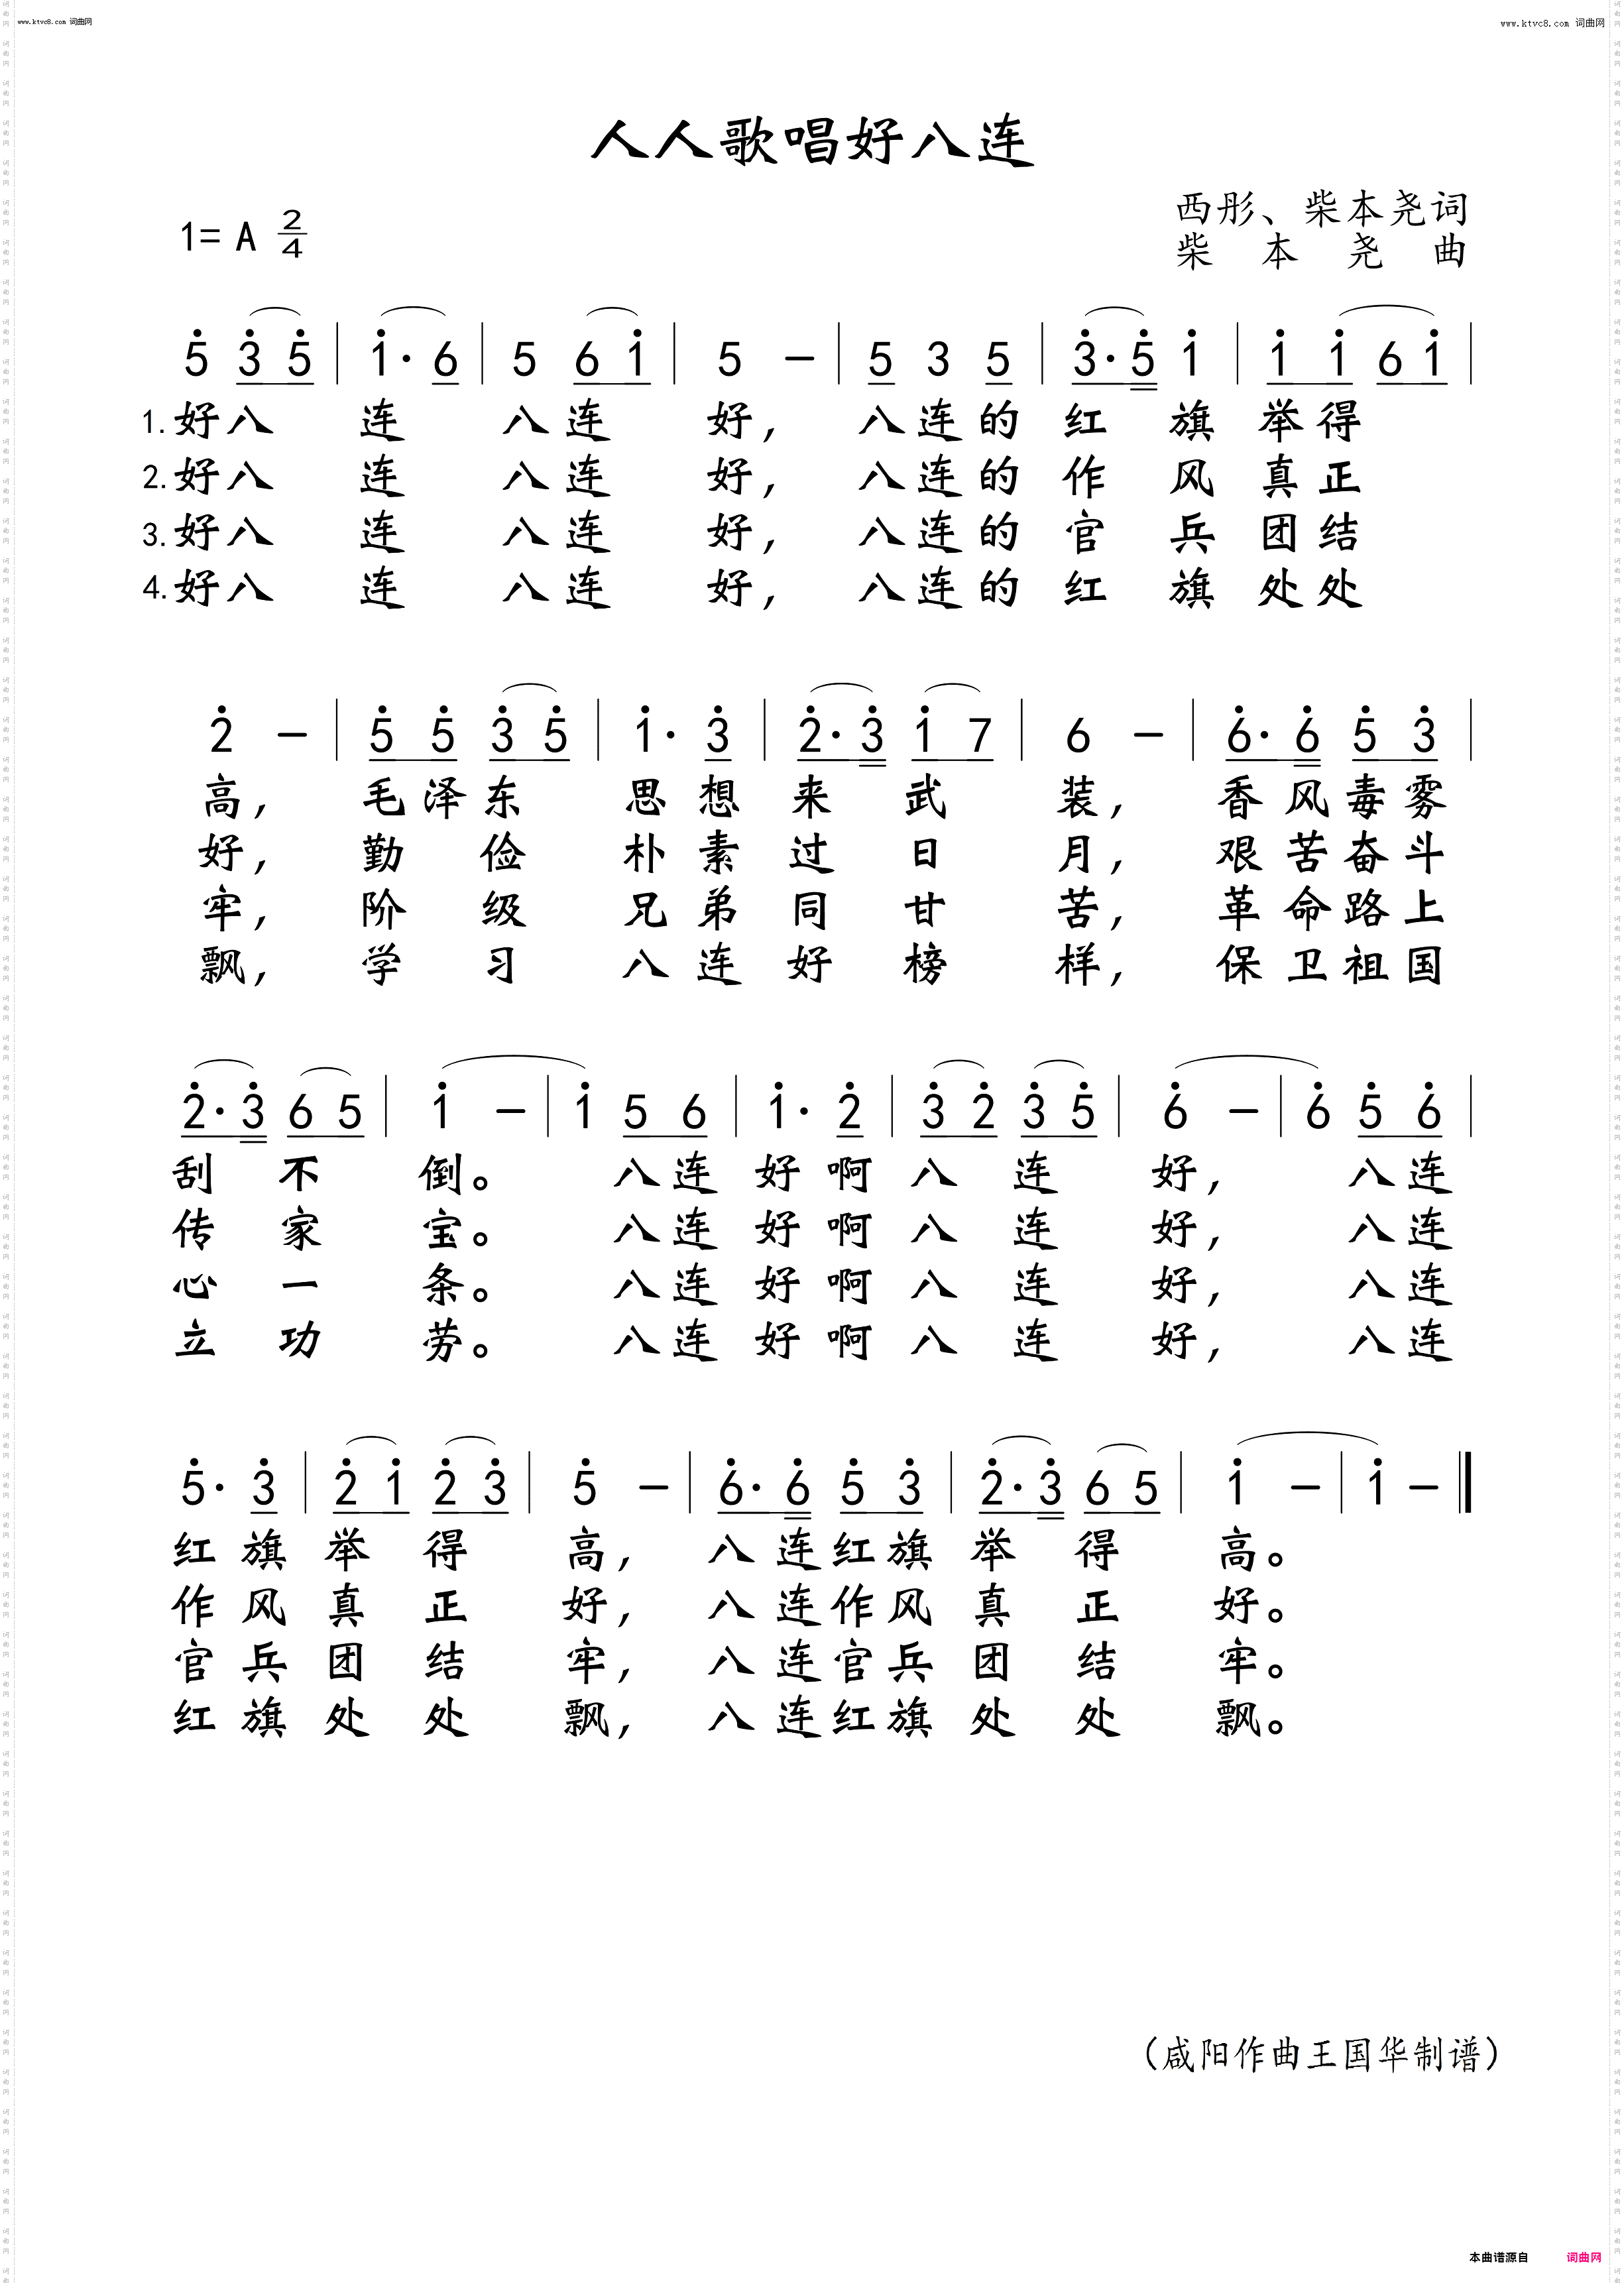 www.ktvc8.com 词曲网
www.ktvc8.com 词曲网
人人歌唱好八连
西彤、柴本尧词
1=A 2/4
柴本尧曲
5̇ 3̇ 5̇ | 1̇· 6 | 5 6 1̇ | 5 — | 5 3 5 | 3̇· 5̇ 1̇ | 1̇ 1̇ 6 1̇ |
1.好八连八连好，八连的红旗举得
2.好八连八连好，八连的作风真正
3.好八连八连好，八连的官兵团结
4.好八连八连好，八连的红旗处处
2̇ — | 5̇ 5̇ 3̇ 5̇ | 1̇· 3̇ | 2̇· 3̇ 1̇ 7 | 6 — | 6̇· 6̇ 5̇ 3̇ |
高，毛泽东思想来武装，香风毒雾
好，勤俭朴素过日月，艰苦奋斗
牢，阶级兄弟同甘苦，革命路上
飘，学习八连好榜样，保卫祖国
2̇· 3̇ 6 5 | 1̇ — | 1̇ 5 6 | 1̇· 2̇ | 3̇ 2̇ 3̇ 5̇ | 6̇ — | 6̇ 5̇ 6̇ |
刮不倒。八连好啊八连好，八连
传家宝。八连好啊八连好，八连
心一条。八连好啊八连好，八连
立功劳。八连好啊八连好，八连
5̇· 3̇ | 2̇ 1̇ 2̇ 3̇ | 5̇ — | 6̇· 6̇ 5̇ 3̇ | 2̇· 3̇ 6 5 | 1̇ — | 1̇ — ‖
红旗举得高，八连红旗举得高。
作风真正好，八连作风真正好。
官兵团结牢，八连官兵团结牢。
红旗处处飘，八连红旗处处飘。
（咸阳作曲王国华制谱）
本曲谱源自 词曲网